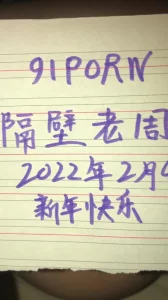 91PORN
隔壁老周
2022年2月
新年快乐